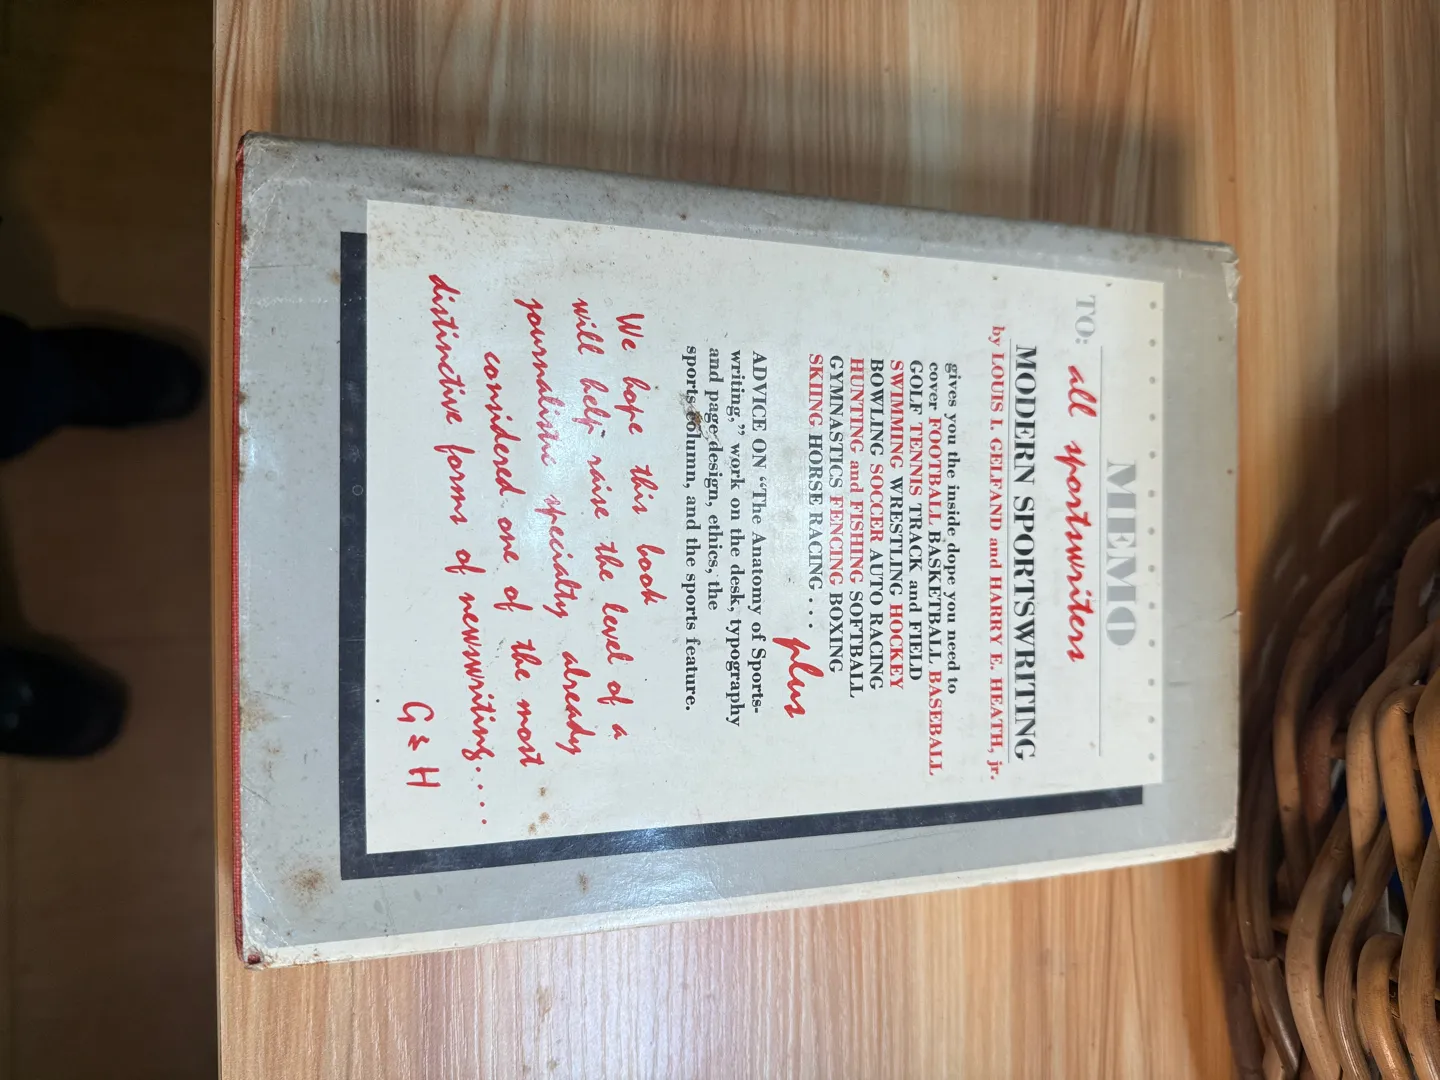 MEMO
TO: all sportswriters
MODERN SPORTSWRITING
by LOUIS I. GELFAND and HARRY E. HEATH, jr.
gives you the inside dope you need to
cover FOOTBALL BASKETBALL BASEBALL
GOLF TENNIS TRACK and FIELD
SWIMMING WRESTLING HOCKEY
BOWLING SOCCER AUTO RACING
HUNTING and FISHING SOFTBALL
GYMNASTICS FENCING BOXING
SKIING HORSE RACING . . . plus
ADVICE ON “The Anatomy of Sports-
writing,” work on the desk, typography
and page design, ethics, the
sports column, and the sports feature.
We hope this book
will help raise the level of a
journalistic specialty already
considered one of the most
distinctive forms of newswriting....
G & H